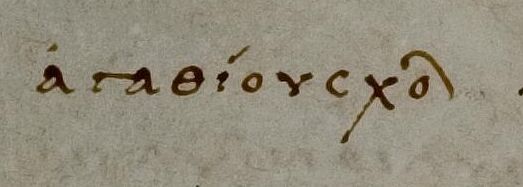 ἀγαθίου σχολ